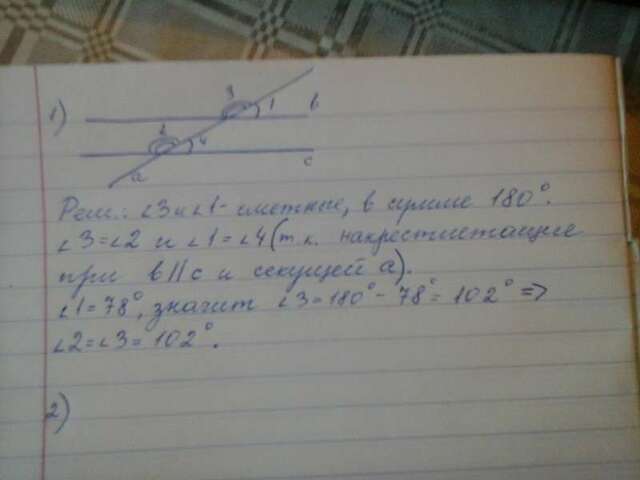 1)
3 1 b
2 4
c
a
Реш.: ∠3 и ∠1 - смежные, в сумме 180°.
∠3=∠2 и ∠1=∠4 (т.к. накрестлежащие
при b||c и секущей a).
∠1=78°, значит ∠3=180°-78°=102° =>
∠2=∠3=102°.
2)